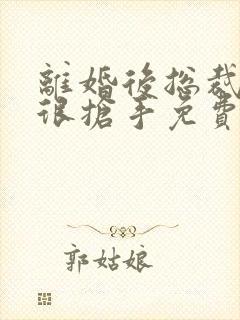 離婚後总裁
很搶手免費
郭姑娘